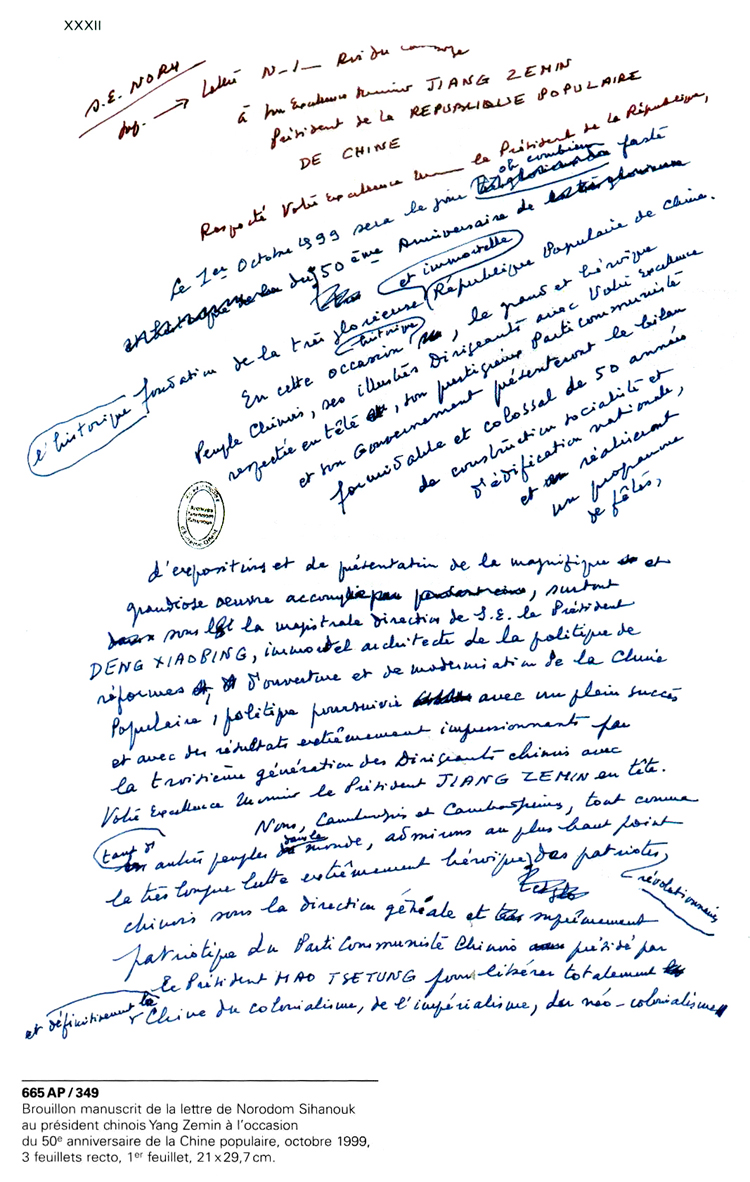 XXXII
S.E. NORH
Lettre N-1- Roi du Cambodge
à Son Excellence Monsieur JIANG ZEMIN
Président de la REPUBLIQUE POPULAIRE
DE CHINE
Respecté Votre Excellence le Président de la République,
Le 1er Octobre 1999 sera le jour oh combien faste
du 50ème Anniversaire de
et immortelle
l'historique fondation de la très glorieuse République Populaire de Chine.
historique
En cette occasion, le grand et héroïque
Peuple Chinois, ses illustres Dirigeants avec Votre Excellence
respectée en tête, son prestigieux Parti communiste
et son Gouvernement présenteront le bilan
formidable et colossal de 50 années
de construction socialiste et
d'édification nationale,
et réaliseront
un programme
de fêtes,
d'expositions et de présentation de la magnifique et
grandiose oeuvre accomplie, surtout
sous la magistrale direction de S.E. le Président
DENG XIAOPING, immortel architecte de la politique de
réformes, d'ouverture et de modernisation de la Chine
Populaire, politique poursuivie avec un plein succès
et avec des résultats extrêmement impressionnants par
la troisième génération des Dirigeants chinois avec
Votre Excellence Monsieur le Président JIANG ZEMIN en tête.
Nous, Cambodgiens et Cambodgiennes, tout comme
tant d'autres peuples dans le monde, admirons au plus haut point
la très longue lutte extrêmement héroïque des patriotes
révolutionnaires
chinois sous la direction générale et suprêmement
patriotique du Parti Communiste Chinois présidé par
le Président MAO TSETUNG pour libérer totalement
et définitivement la Chine du colonialisme, de l'impérialisme, du néo-colonialisme
665 AP / 349
Brouillon manuscrit de la lettre de Norodom Sihanouk
au président chinois Yang Zemin à l'occasion
du 50e anniversaire de la Chine populaire, octobre 1999,
3 feuillets recto, 1er feuillet, 21 x 29,7 cm.